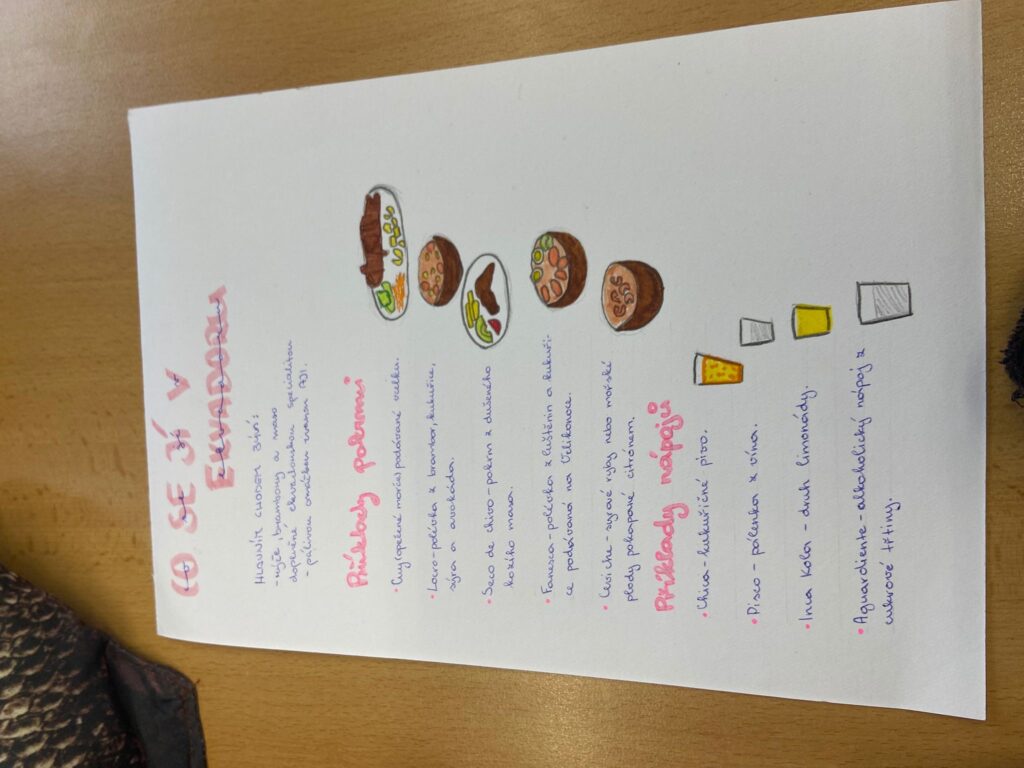 CO SE JÍ V
EKVÁDORU
HLAVNÍM CHODEM BÝVÁ:
- rýže, brambory a maso
doplněné ekvádorskou specialitou
- pálivou omáčkou zvanou AJI.
Příklady pokrmů
• Cuy-opečené morče podávané vcelku.
• Locro-polévka z brambor, kukuřice,
sýra a avokáda.
• Seco de chivo-pokrm z dušeného
kozího masa.
• Fanesca-polévka z luštěnin a kukuři-
ce podávaná na Velikonoce.
• Ceviche-syrové ryby nebo mořské
plody pokapané citrónem.
Příklady nápojů
• Chicha-kukuřičné pivo.
• Pisco - pálenka z vína.
• Inca Kola - druh limonády.
• Aguardiente-alkoholický nápoj z
cukrové třtiny.